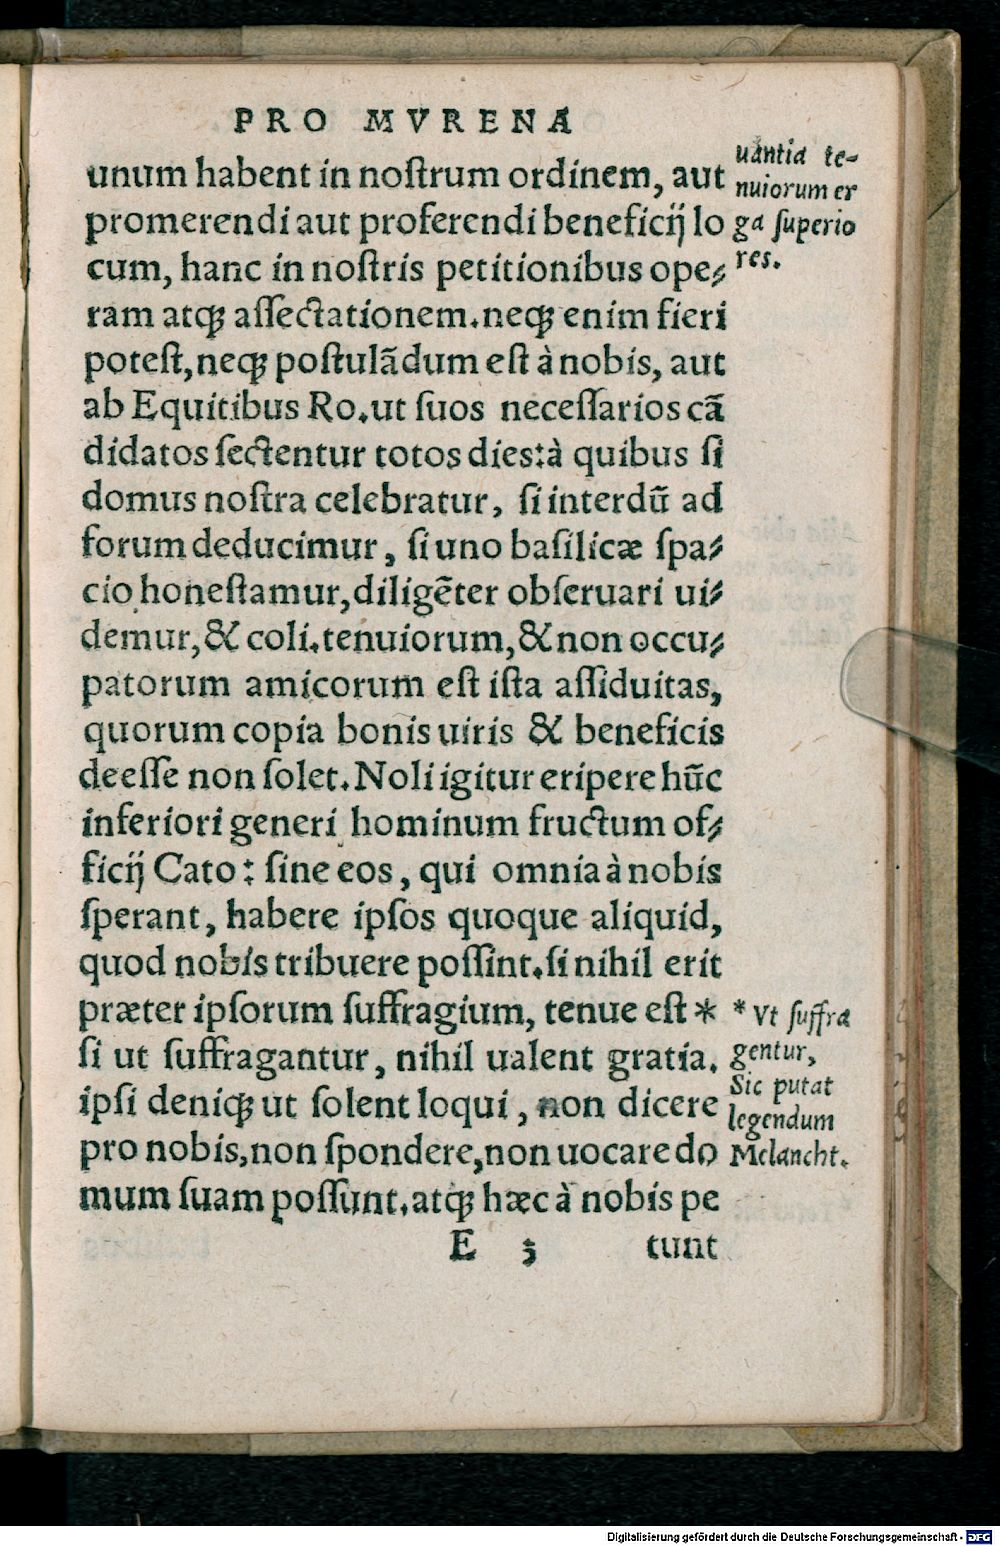 PRO MVRENA
unum habent in noſtrum ordinem, aut
promerendi aut proferendi beneficij lo
cum, hanc in noſtris petitionibus ope⸗
ram atq́ꝫ aſſectationem. neq́ꝫ enim fieri
poteſt, neq́ꝫ poſtulãdum eſt à nobis, aut
ab Equitibus Ro. ut ſuos neceſſarios cã
didatos ſectentur totos dies: à quibus ſi
domus noſtra celebratur, ſi interdũ ad
forum deducimur, ſi uno baſilicæ ſpa⸗
cio honeſtamur, diligẽter obſeruari ui⸗
demur, & coli. tenuiorum, & non occu⸗
patorum amicorum eſt iſta aſſiduitas,
quorum copia bonis uiris & beneficis
deeſſe non ſolet. Noli igitur eripere hũc
inferiori generi hominum fructum of⸗
ficij Cato: ſine eos, qui omnia à nobis
ſperant, habere ipſos quoque aliquid,
quod nobis tribuere poſſint. ſi nihil erit
præter ipſorum ſuffragium, tenue eſt *
ſi ut ſuffragantur, nihil ualent gratia.
ipſi deniq́ꝫ ut ſolent loqui, non dicere
pro nobis, non ſpondere, non uocare do
mum ſuam poſſunt. atq́ꝫ hæc à nobis pe
E 3 tunt
uantia te-
nuiorum er
ga ſuperio
res.
* Vt ſuffra
gentur,
Sic putat
legendum
Melancht.
Digitalisierung gefördert durch die Deutsche Forschungsgemeinschaft - DFG